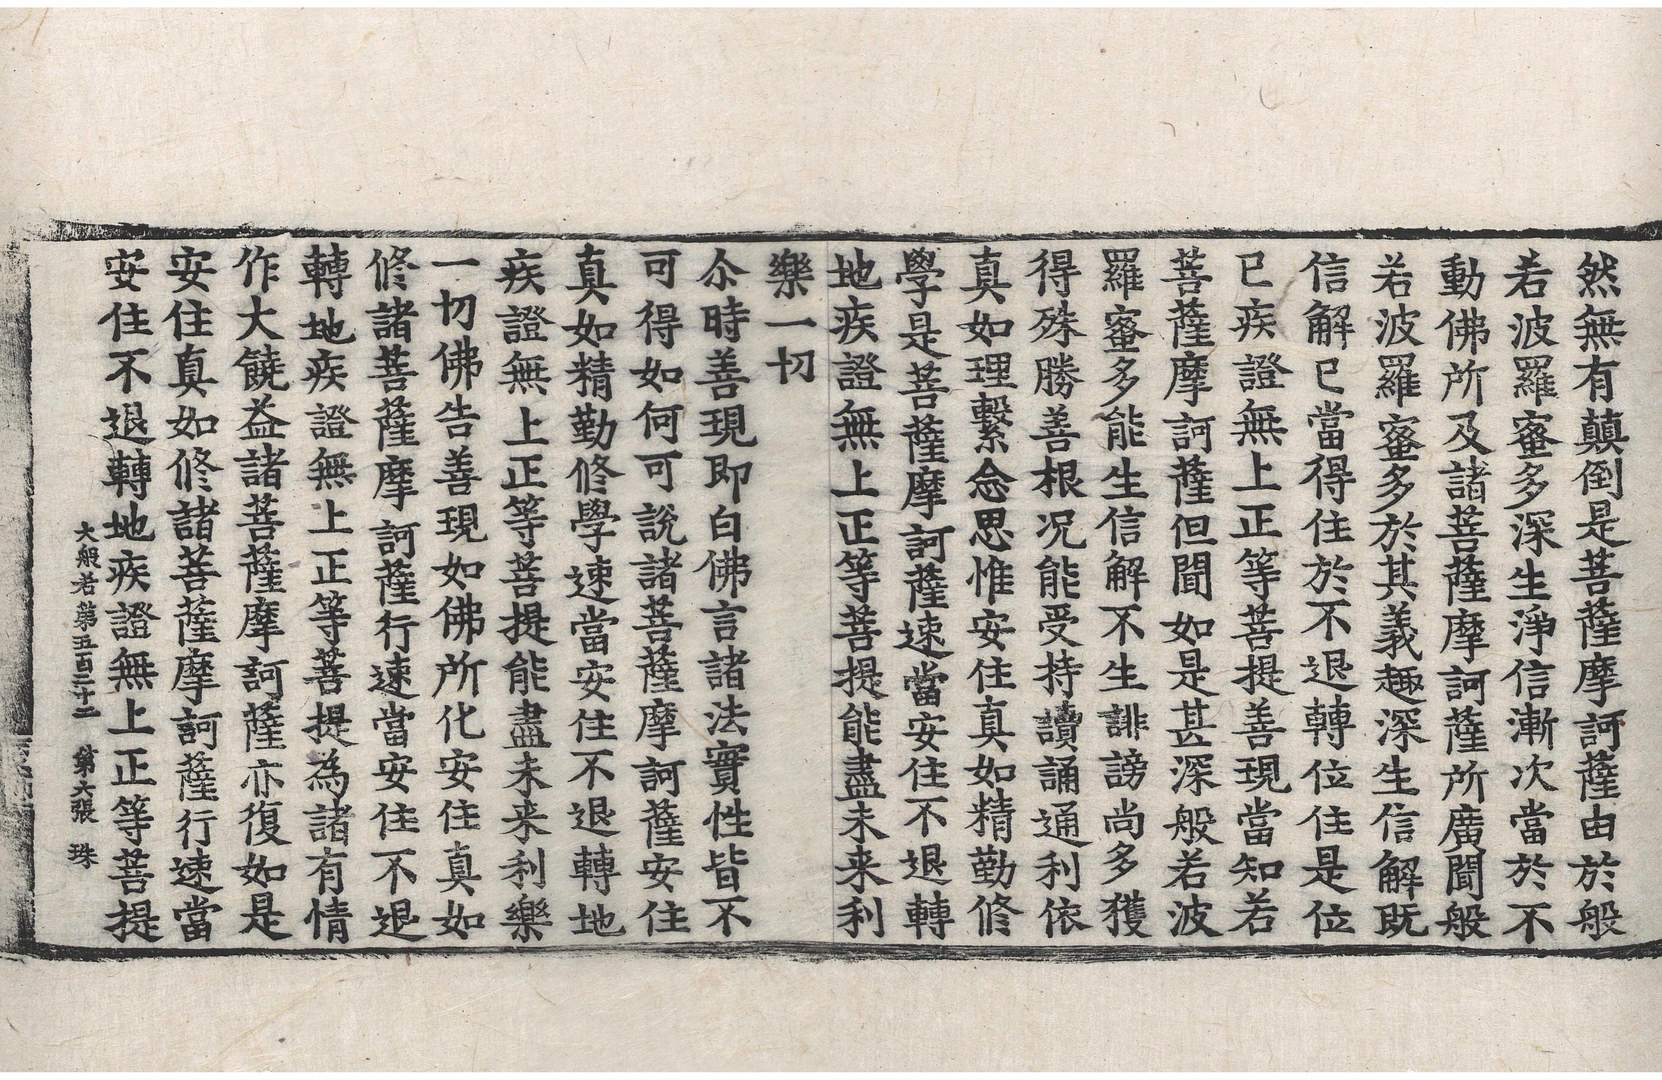 然無有顛倒是菩薩摩訶薩由於般
若波羅蜜多深生淨信漸次當於不
動佛所及諸菩薩摩訶薩所廣聞般
若波羅蜜多於其義趣深生信解既
信解已當得住於不退轉位住是位
已疾證無上正等菩提善現當知若
菩薩摩訶薩但聞如是甚深般若波
羅蜜多能生信解不生誹謗尚多獲
得殊勝善根况能受持讀誦通利依
真如理繫念思惟安住真如精勤修
學是菩薩摩訶薩速當安住不退轉
地疾證無上正等菩提能盡未来利
樂一切
尒時善現即白佛言諸法實性皆不
可得如何可說諸菩薩摩訶薩安住
真如精勤修學速當安住不退轉地
疾證無上正等菩提能盡未来利樂
一切佛告善現如佛所化安住真如
修諸菩薩摩訶薩行速當安住不退
轉地疾證無上正等菩提為諸有情
作大饒益諸菩薩摩訶薩亦復如是
安住真如修諸菩薩摩訶薩行速當
安住不退轉地疾證無上正等菩提
大般若第五百二十二 第六張 珠